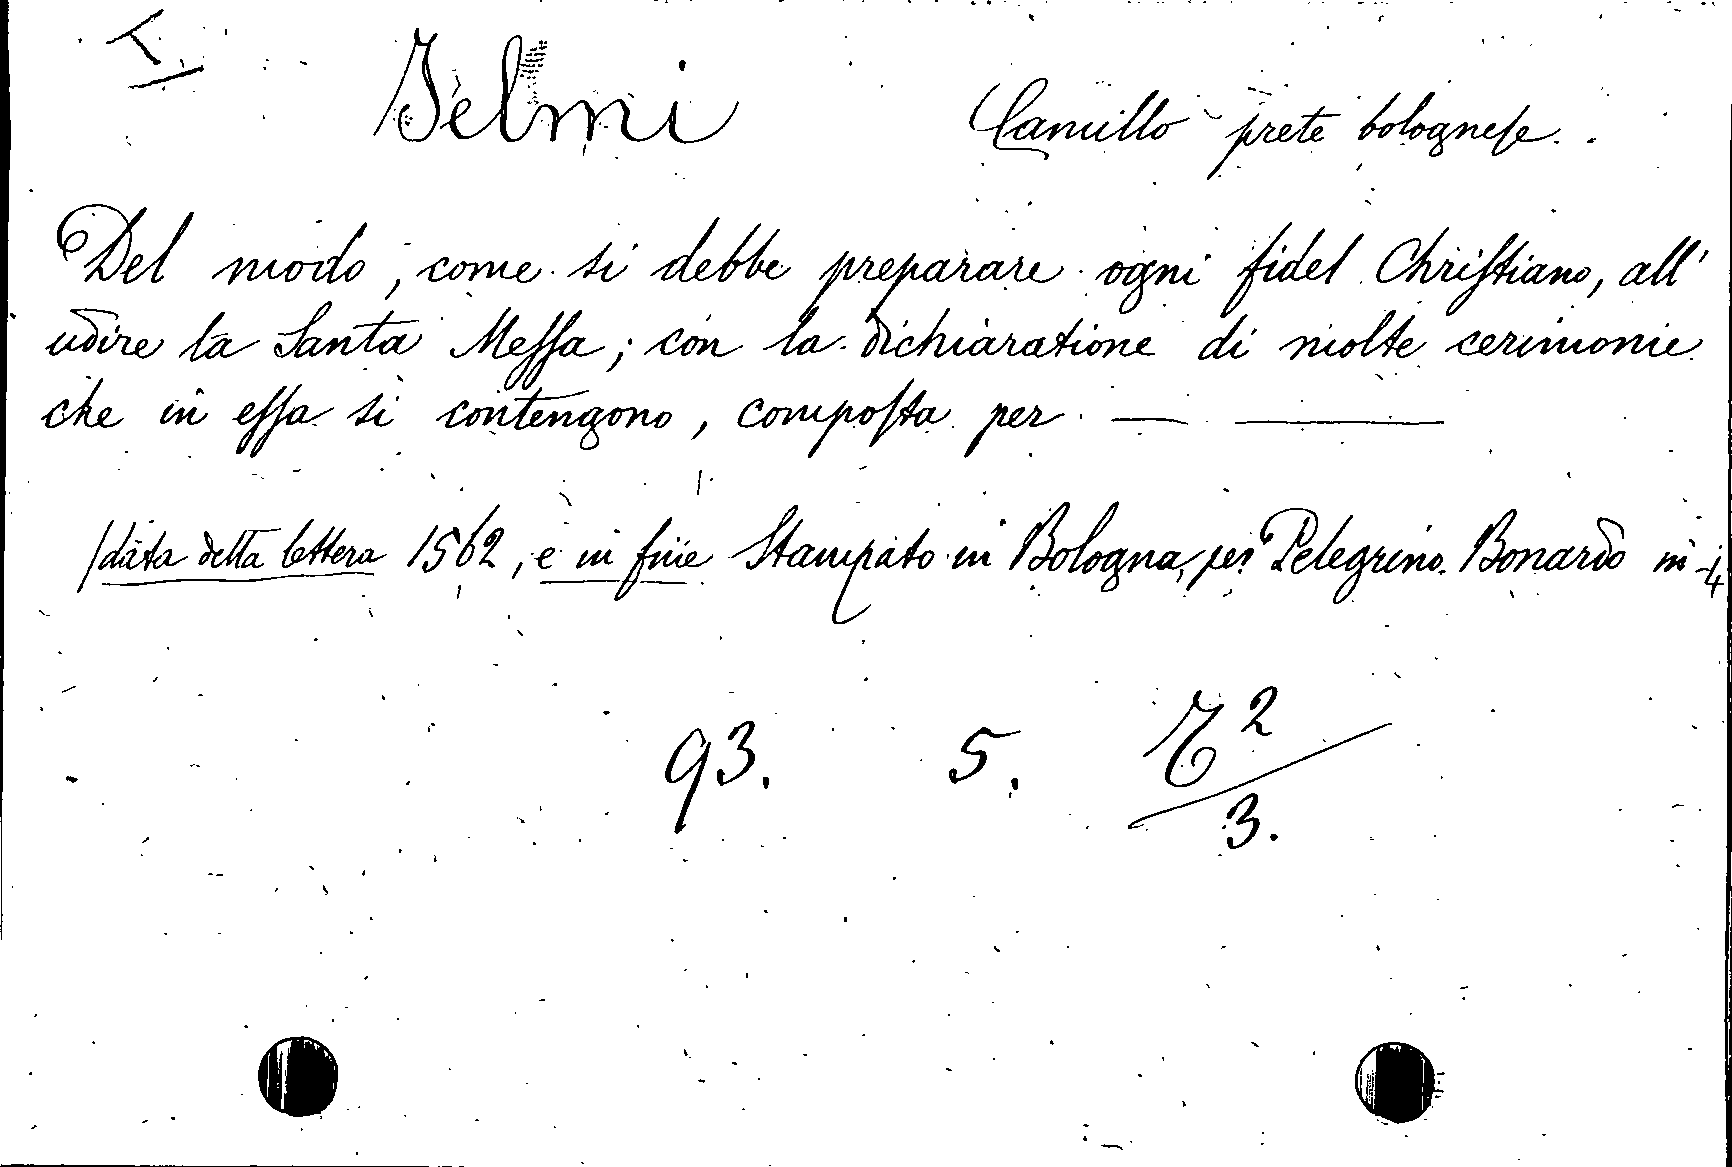 Jelmi Camillo prete bolognese.
Del modo, come si debbe preparare ogni fidel Christiano, all'
udire la Santa Messa; con la dichiaratione di molte cerimonie
che in essa si contengono, composta per — —
(data detta lettera 1562, e in fine Stampato in Bologna, per Pelegrino Bonardo in 4
93. 5. 2
3.